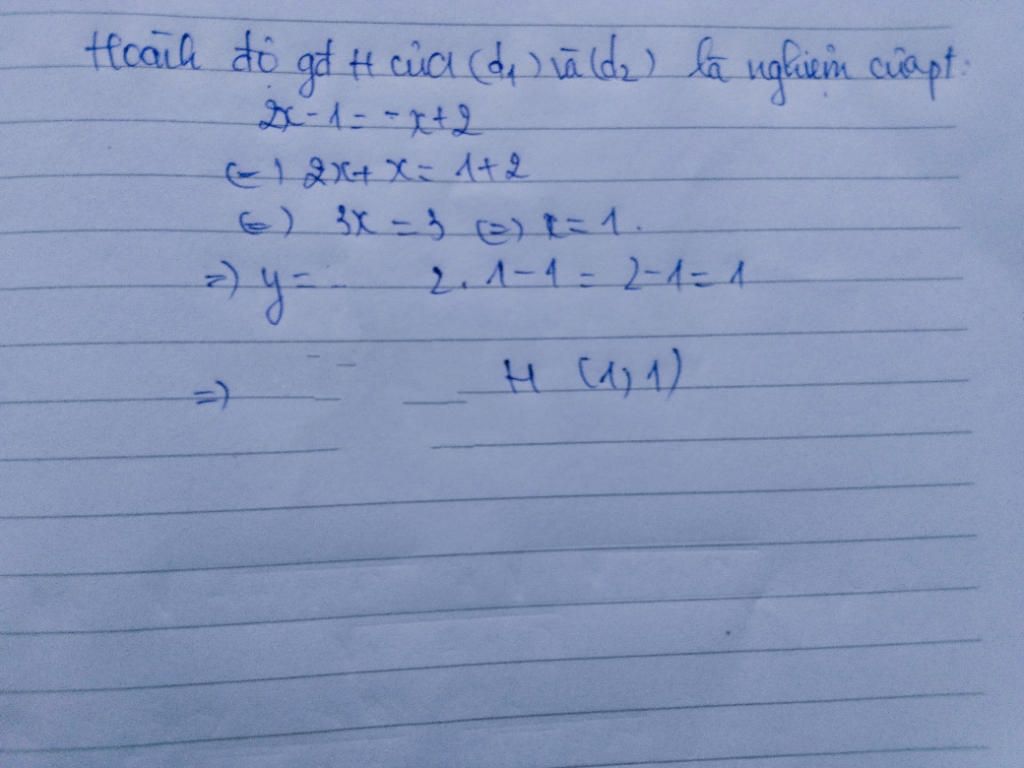 Hoành độ gđ H của (d1) và (d2) là nghiệm của pt:
2x - 1 = -x + 2
(=) 2x + x = 1 + 2
(=) 3x = 3 (=) x = 1.
=) y = 2. 1 - 1 = 2 - 1 = 1
=) H (1, 1)